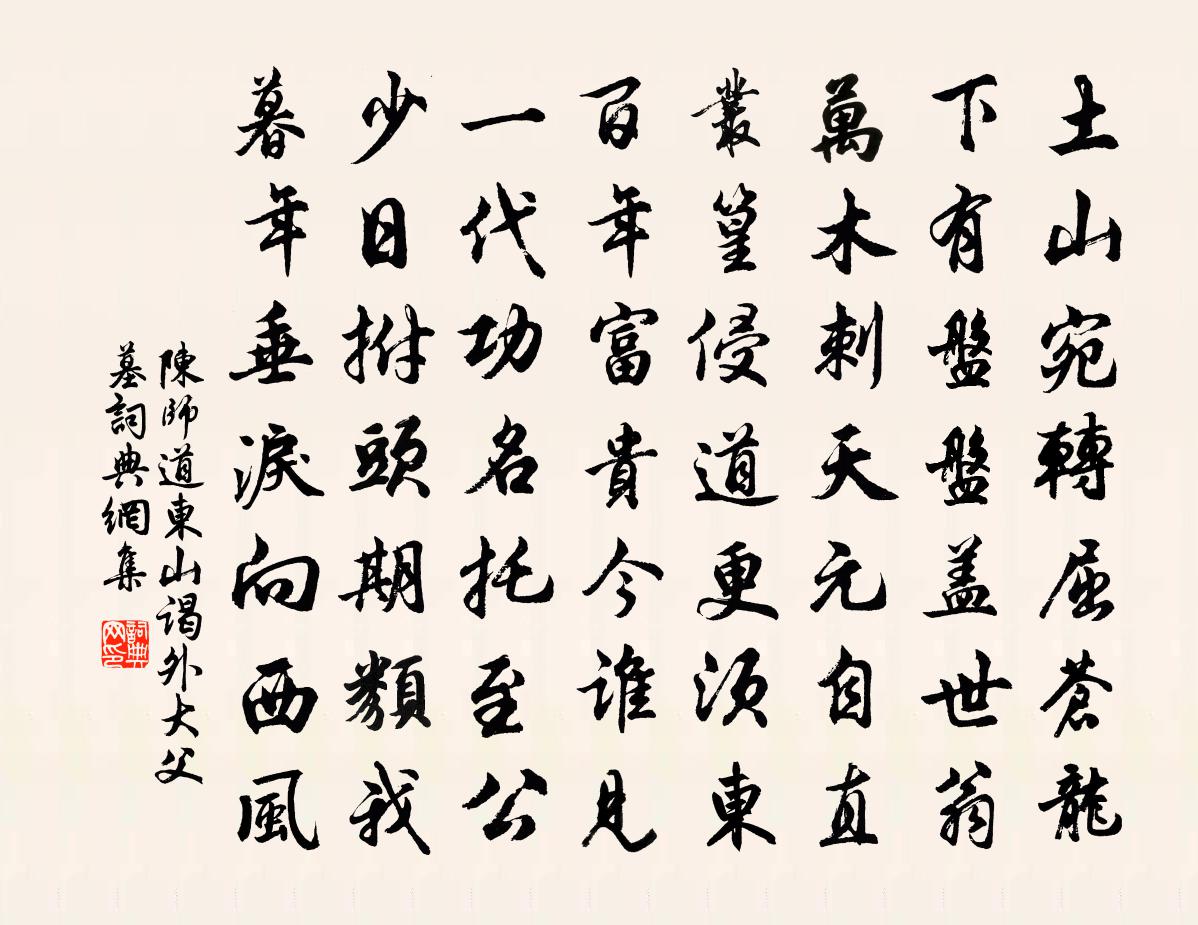 土山宛轉屈蒼龍
下有盤盤盖世翁
萬木刺天元自直
叢篁侵道更須東
百年富貴今誰見
一代功名托至公
少日拊頭期類我
暮年垂淚向西風
陳師道東山謁外大父
墓詞典網集
詞典
网印